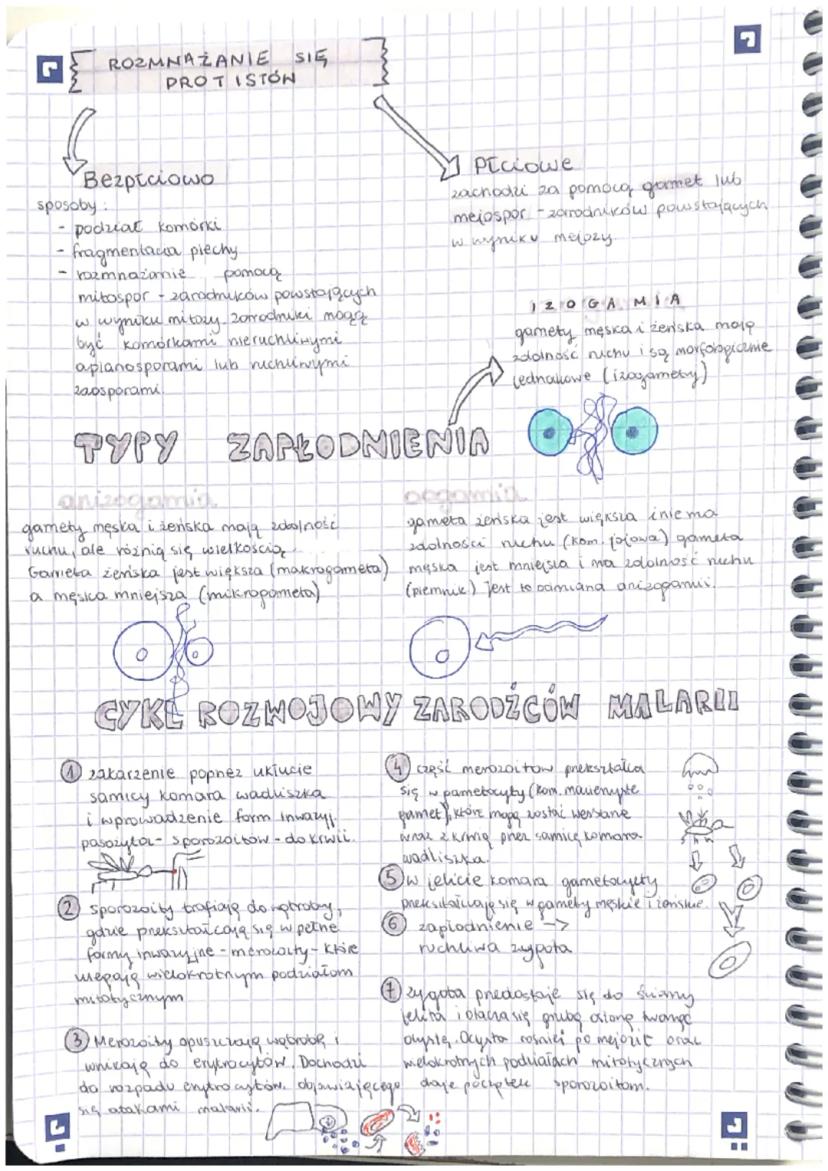 ROZMNAŻANIE SIĘ
PROTISTÓW
Bezpłciowo
sposoby:
- podział komórki
- fragmentacja plechy
- rozmnażanie pomocą
mitospor - zarodników powstających
w wyniku mitozy. zarodniki mogą
być komórkami nieruchliwymi
aplanosporami lub ruchliwymi
zoosporami.
Płciowe
zachodzi za pomocą gamet lub
mejospor - zarodników powstających
w wyniku mejozy.
IZOGAMIA
gamety męska i żeńska mają
zdolność ruchu i są morfologicznie
jednakowe (izogamety)
TYPY ZAPŁODNIENIA
anizogamia
gamety męska i żeńska mają zdolność
ruchu, ale różnią się wielkością
Gameta żeńska jest większa (makrogameta)
a męska mniejsza (mikrogameta)
oogamia
gameta żeńska jest większa i nie ma
zdolności ruchu (kom. jajowa) gameta
męska jest mniejsza i ma zdolność ruchu
(plemnik) Jest to odmiana anizogamii.
CYKL ROZWOJOWY ZARODŹCÓW MALARII
1 zakarzenie poprzez ukłucie
samicy komara widliszka
i wprowadzenie form inwazyj.
pasożyta - sporozoitów - do krwii.
2 sporozoity trafiają do wątroby,
gdzie przekształcają się w pełne
formy inwazyjne - merozoity - które
ulegają wielokrotnym podziałom
mitotycznym
3 Merozoity opuszczają wątrobę i
wnikają do erytrocytów. Dochodzi
do rozpadu erytrocytów, objawiającego
się atakami malarii.
4 część merozoitów przekształca
się w gametocyty (kom. macierzyste
gamet), które mogą zostać wessane
wraz z krwią przez samicę komara
widliszka.
5 w jelicie komara gametocyty
przekształcają się w gamety męskie i żeńskie.
6 zapłodnienie ->
ruchliwa zygota
7 zygota przedostaje się do ściany
jelita i otacza się grubą osłoną, tworząc
oocystę. Ocysta rośnie i po mejozie oraz
wielokrotnych podziałach mitotycznych
daje początek sporozoitom.